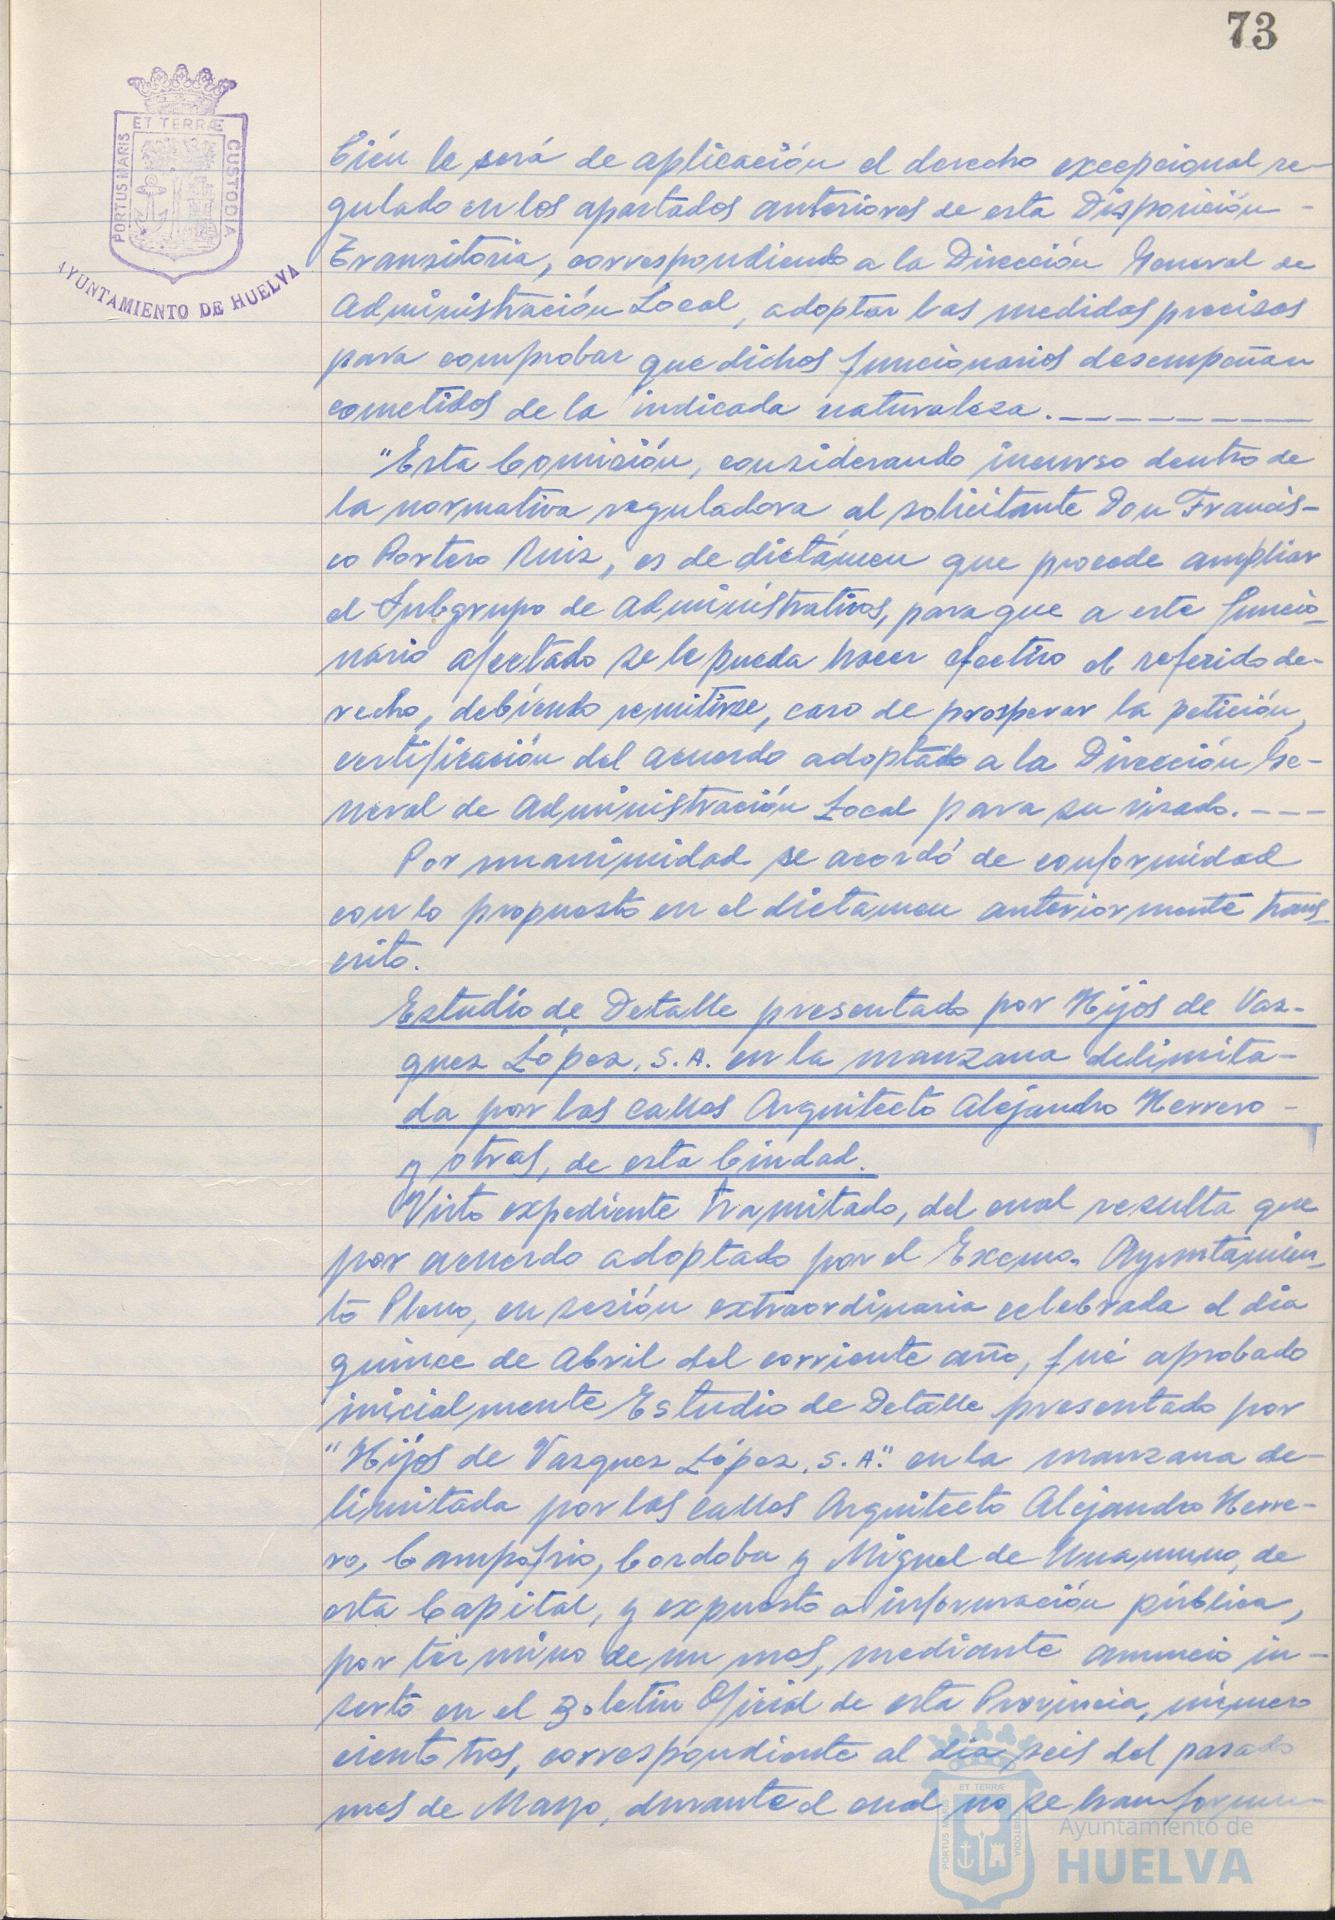 73
ET TERRÆ
PORTUS MARIS
CUSTODIA
AYUNTAMIENTO DE HUELVA
bién le será de aplicación el derecho excepcional re-
gulado en los apartados anteriores de esta Disposición -
Transitoria, correspondiendo a la Dirección General de
Administración Local, adoptar las medidas precisas
para comprobar que dichos funcionarios desempeñan
cometidos de la indicada naturaleza. - - - - - - - -
"Esta Comisión, considerando incurso dentro de
la normativa reguladora al solicitante Don Francis-
co Portero Ruiz, es de dictámen que procede ampliar
el Subgrupo de Administrativos, para que a este funcio-
nario afectado se le pueda hacer efectivo el referido de-
recho, debiendo remitirse, caso de prosperar la petición,
certificación del acuerdo adoptado a la Dirección Ge-
neral de Administración Local para su visado. - - -
Por unanimidad se acordó de conformidad
con lo propuesto en el dictamen anteriormente trans-
crito.
Estudio de Detalle presentado por Hijos de Vaz-
quez López, S.A. en la manzana delimita-
da por las calles Arquitecto Alejandro Herrero -
y otras, de esta Ciudad.
Visto expediente tramitado, del cual resulta que
por acuerdo adoptado por el Excmo. Ayuntamien-
to Pleno, en sesión extraordinaria celebrada el dia
quince de Abril del corriente año, fué aprobado
inicialmente Estudio de Detalle presentado por
"Hijos de Vazquez López, S.A." en la manzana de-
limitada por las calles Arquitecto Alejandro Herre-
ro, Campofrio, Cordoba y Miguel de Unamuno, de
esta Capital, y expuesto a información pública,
por término de un mes, mediante anuncio in-
serto en el Boletin Oficial de esta Provincia, número
ciento tres, correspondiente al dia seis del pasado
mes de Mayo, durante el cual no se han formu-
ET TERRÆ
PORTUS MARIS
CUSTODIA
Ayuntamiento de
HUELVA